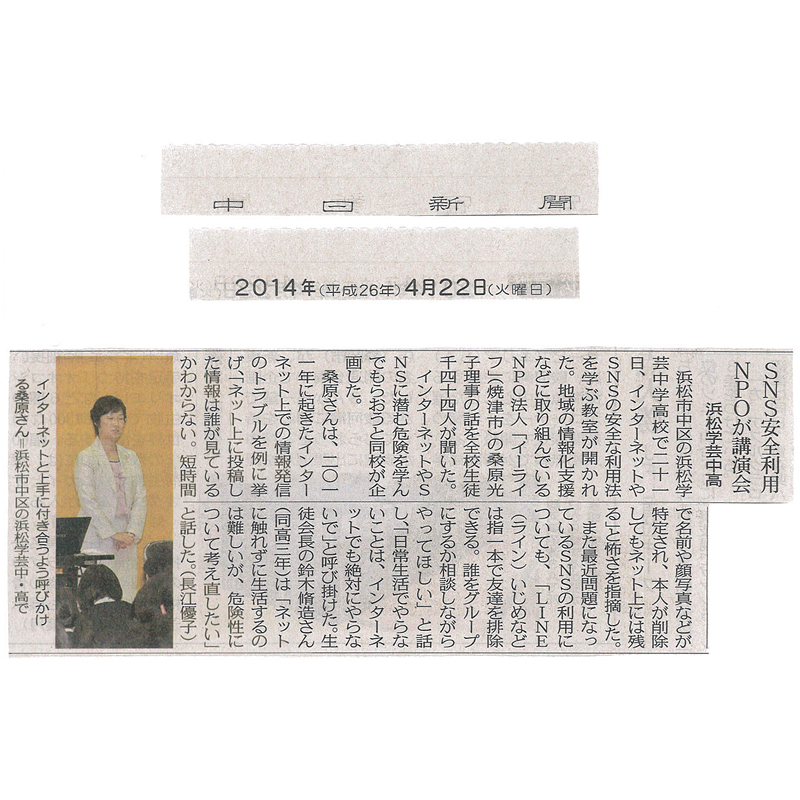 中日新聞
2014年(平成26年)4月22日(火曜日)
SNS安全利用
NPOが講演会
浜松学芸中高
浜松市中区の浜松学
芸中学高校で二十一
日、インターネットや
SNSの安全な利用法
を学ぶ教室が開かれ
た。地域の情報化支援
などに取り組んでいる
NPO法人「イーライ
フ」(焼津市)の桑原光
子理事の話を全校生徒
千四十四人が聞いた。
インターネットやS
NSに潜む危険を学ん
でもらおうと同校が企
画した。
桑原さんは、二〇一
一年に起きたインター
ネット上での情報発信
のトラブルを例に挙
げ、「ネット上に投稿し
た情報は誰が見ている
かわからない。短時間
で名前や顔写真などが
特定され、本人が削除
してもネット上には残
る」と怖さを指摘した。
また最近問題になっ
ているSNSの利用に
ついても、「LINE
(ライン)いじめなど
は指一本で友達を排除
できる。誰をグループ
にするか相談しながら
やってほしい」と話
し「日常生活でやらな
いことは、インターネ
ットでも絶対にやらな
いで」と呼び掛けた。生
徒会長の鈴木脩造さん
(同高三年)は「ネット
に触れずに生活するの
は難しいが、危険性に
ついて考え直したい」
と話した。(長江優子)
インターネットと上手に付き合うよう呼びかけ
る桑原さん=浜松市中区の浜松学芸中・高で